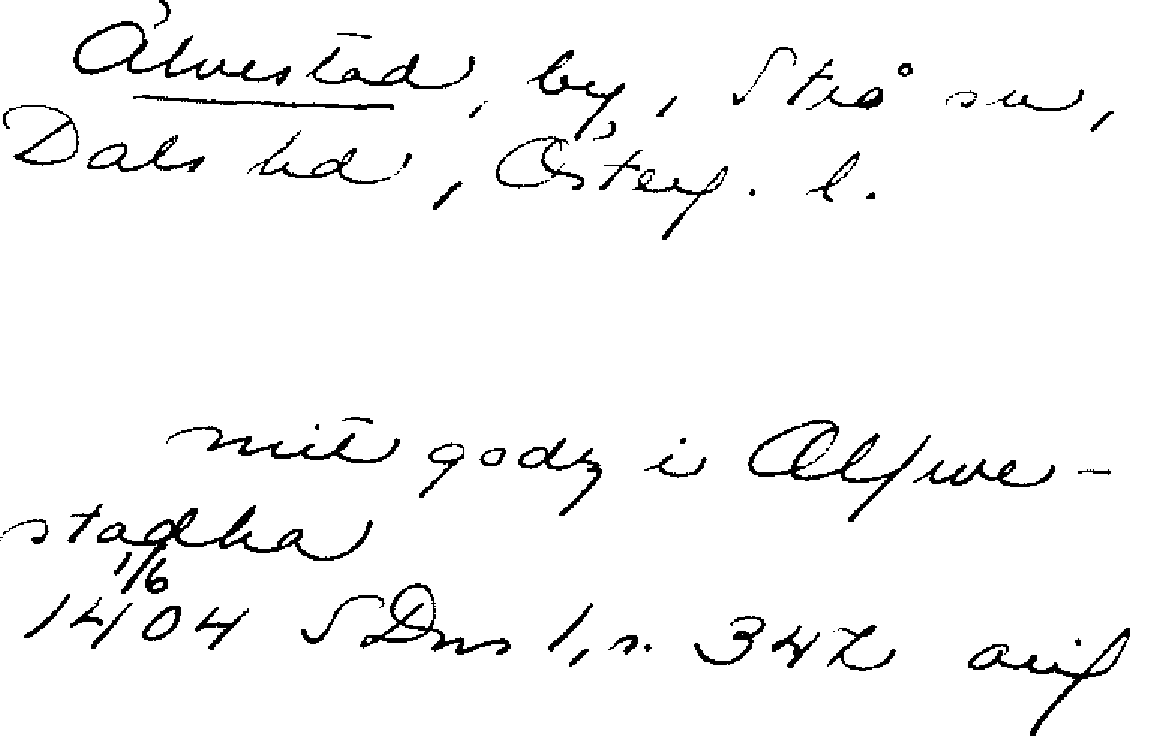 Älvestad, by, Strå sn,
Dals hd, Österg. l.
mit godz i Ælfwe-
stadha
1/6
1404 SDns 1, s. 342 avif